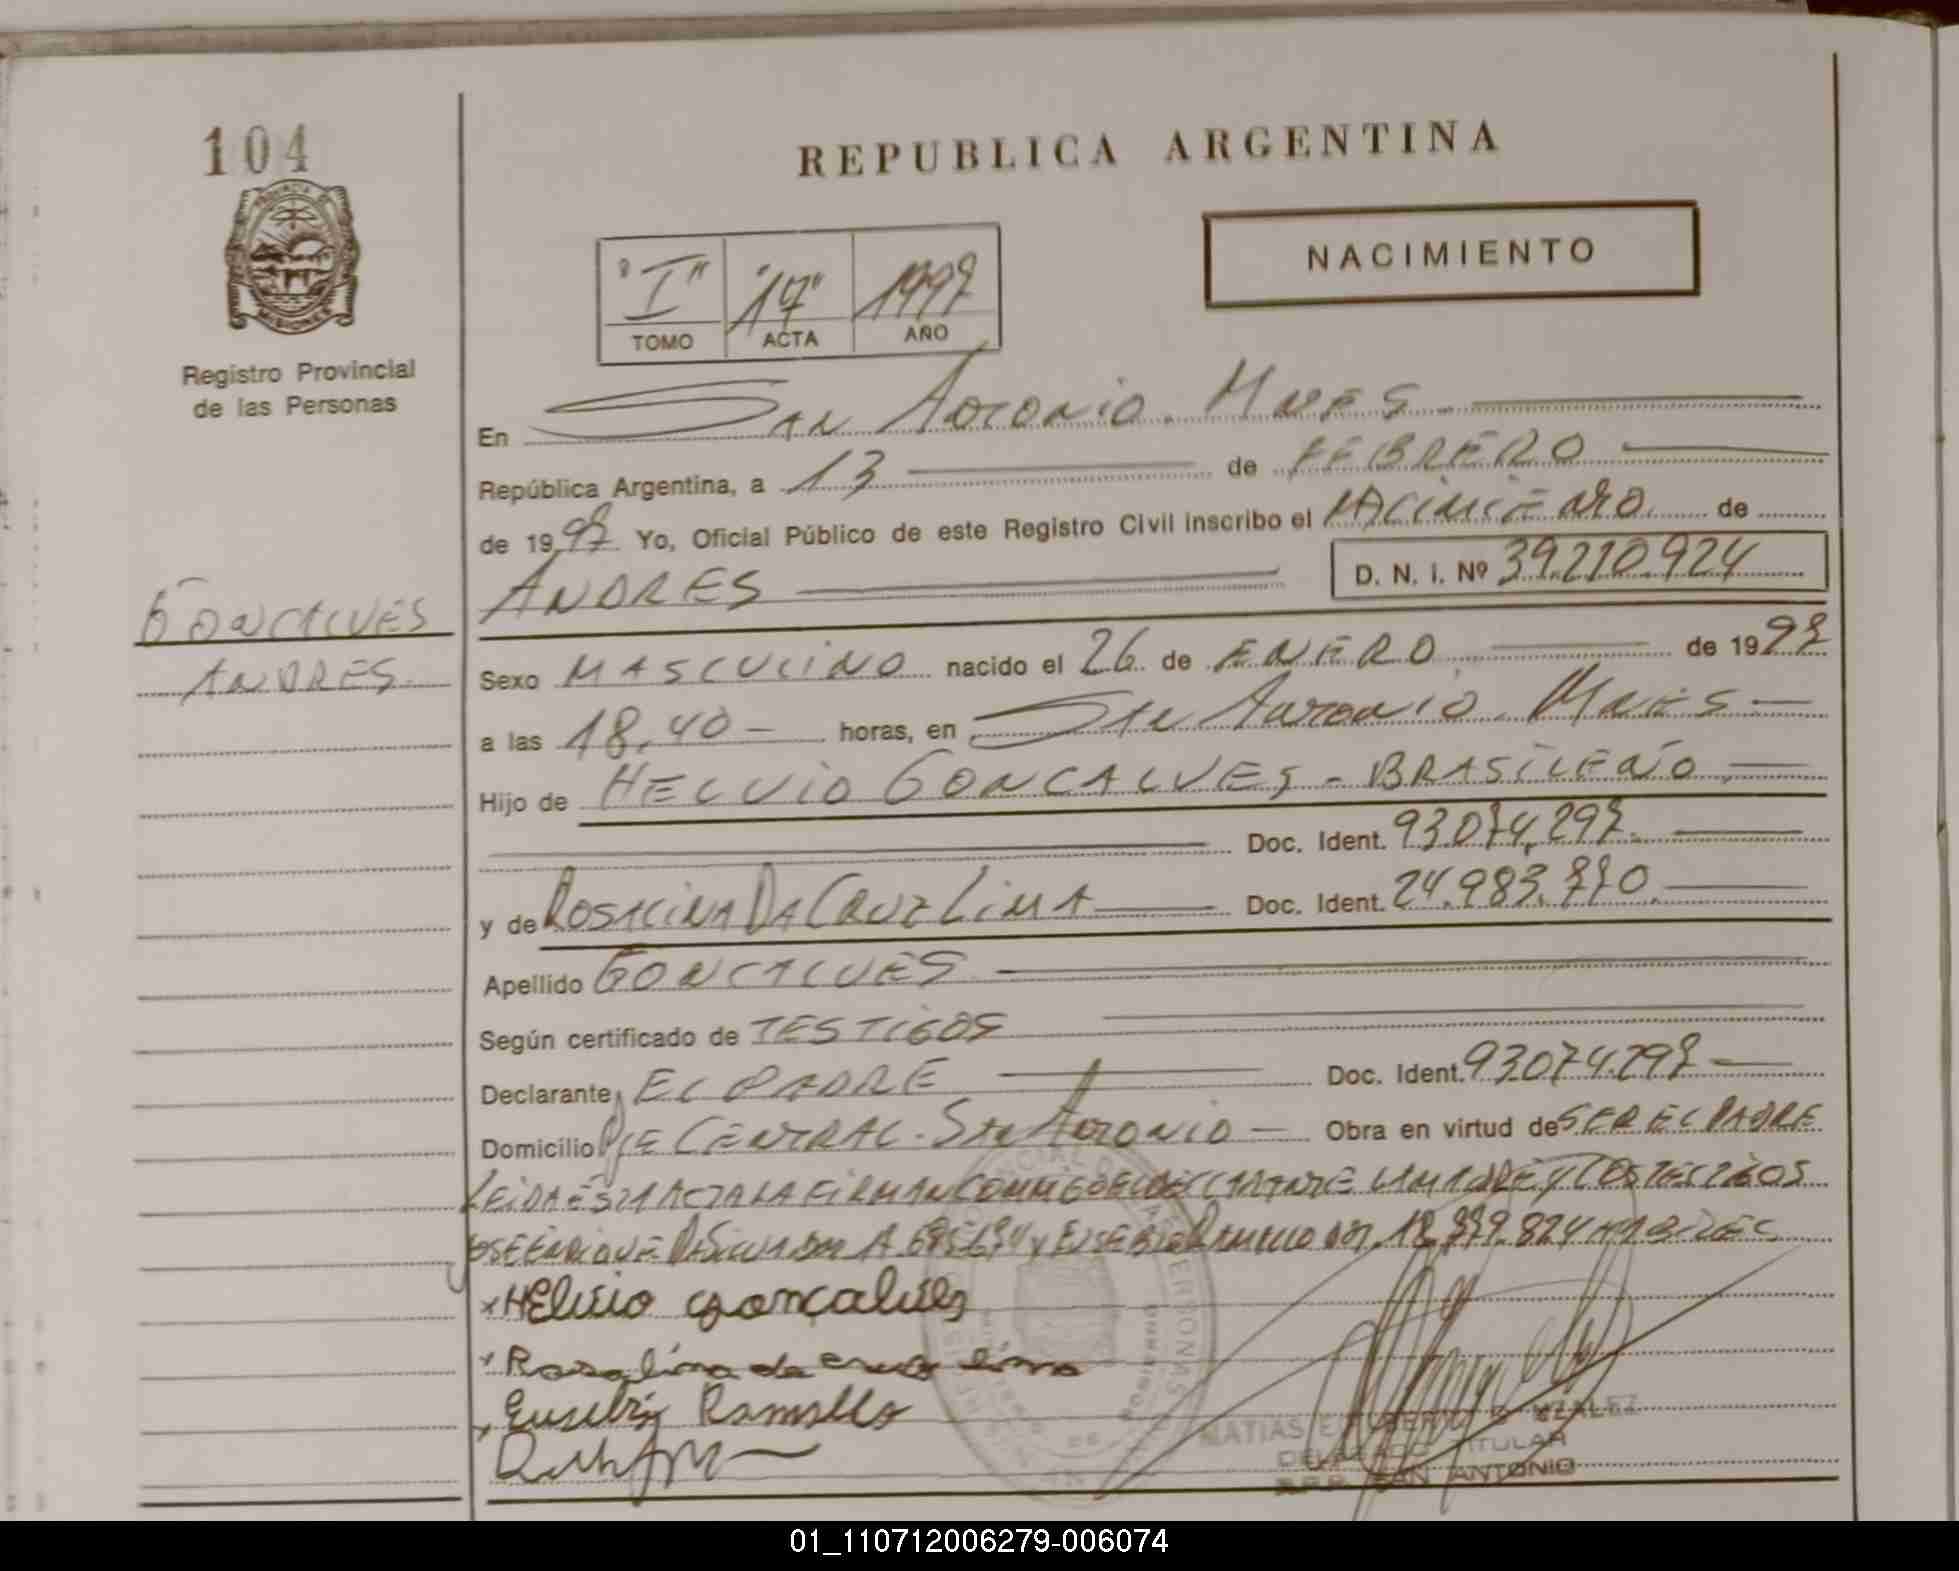 104
REPUBLICA ARGENTINA
PROVINCIA DE
MISIONES
Registro Provincial
de las Personas
NACIMIENTO
"I" "17" 1997
TOMO ACTA AÑO
En San Antonio. Mnes
República Argentina, a 13 de FEBRERO
de 1997 Yo, Oficial Público de este Registro Civil inscribo el NACIMIENTO de
ANDRES D. N. I. Nº 39.210.924
GONCALVES
ANDRES.
Sexo MASCULINO nacido el 26 de ENERO de 1997
a las 18,40 - horas, en San Antonio. Mnes -
Hijo de HELVIO GONCALVES - BRASILEÑO
Doc. Ident. 93.074.297.
y de ROSALINA DA CRUZ LIMA Doc. Ident. 24.983.770
Apellido GONCALVES
Según certificado de TESTIGOS
Declarante, EL PADRE Doc. Ident. 93.074.297
Domicilio Pje CENTRAL - San Antonio - Obra en virtud de SER EL PADRE
LEIDA ESTA ACTA LA FIRMAN CONMIGO EL DECLARANTE LA MADRE Y LOS TESTIGOS
JOSE ENRIQUE DA SILVA Y EUSEBIO RAMALLO DNI 18.779.824
x HElvio gonçalves
x Rosalina da cruz lima
x Eusebio Ramallo
MATIAS GONZALEZ
DELEGADO TITULAR
R.P.P. SAN ANTONIO
01_110712006279-006074